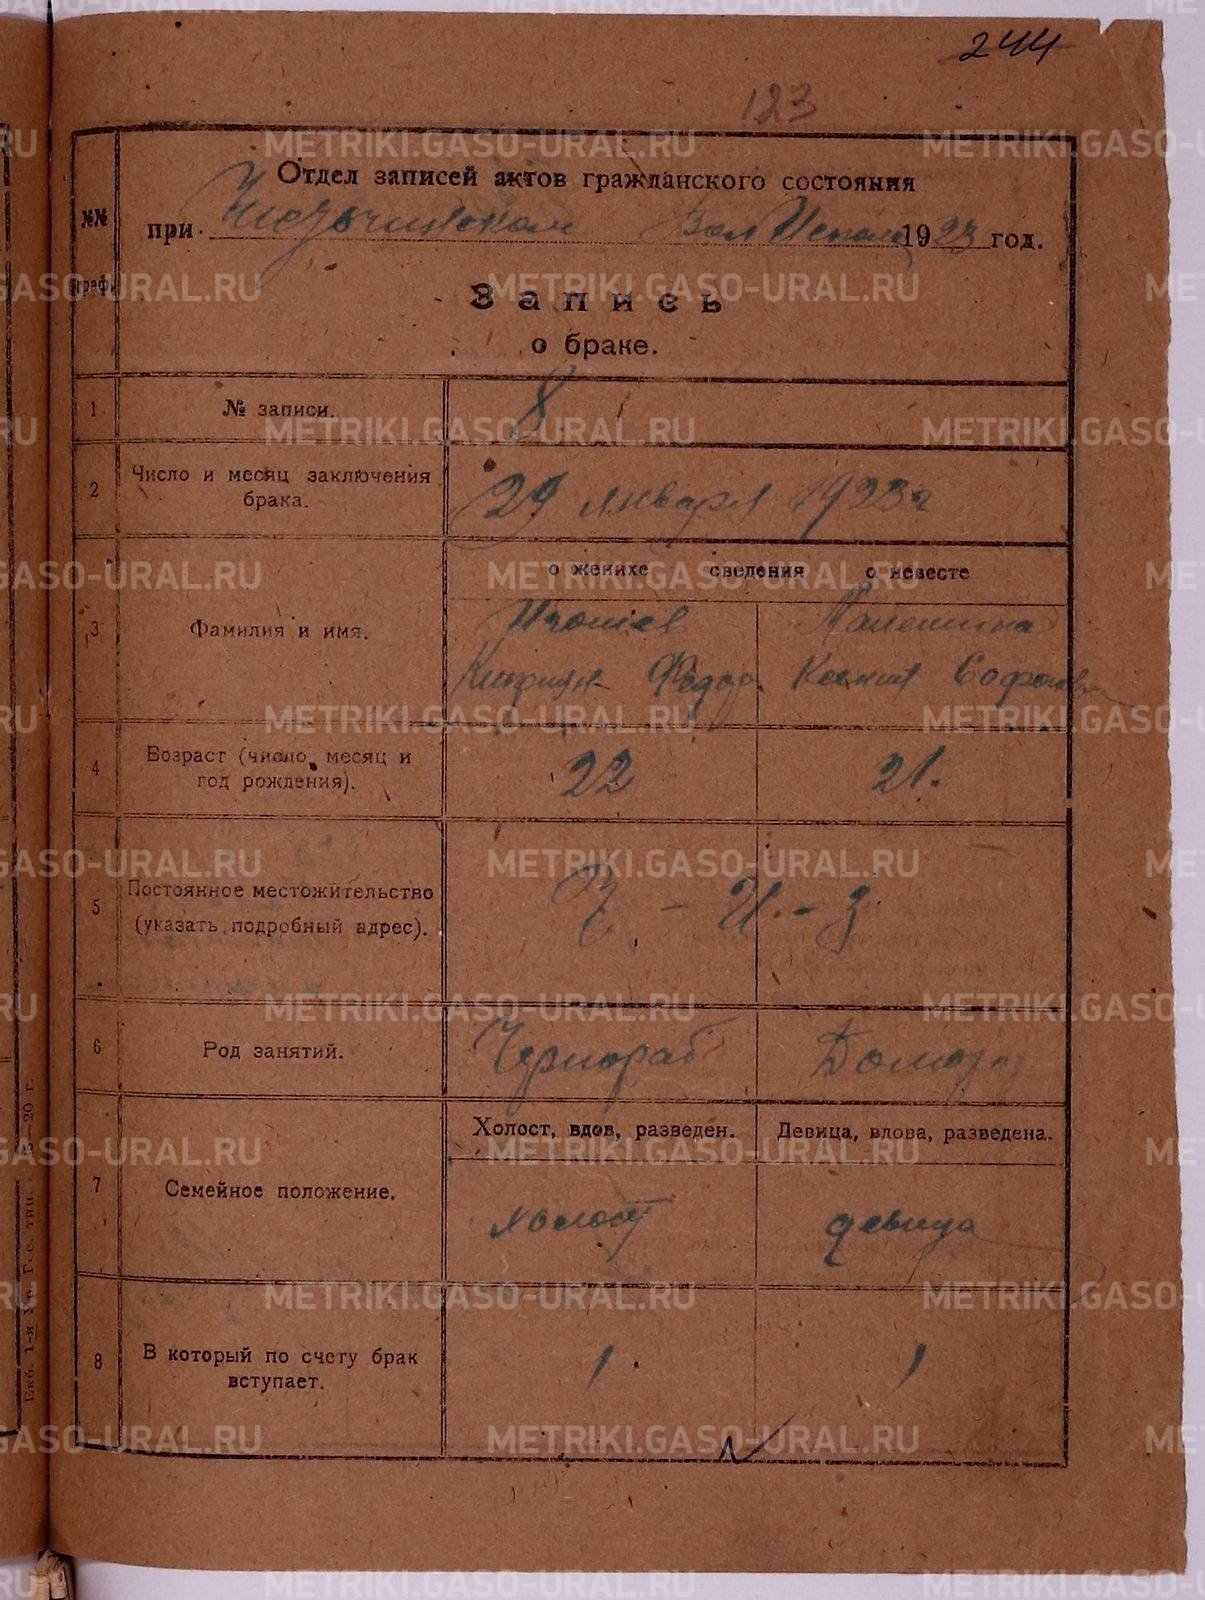 244
123
№№ граф.
Отдел записей актов гражданского состояния
при Вол Исполк 1923 год.
Запись
о браке.
1 № записи. 8
2 Число и месяц заключения брака. 29 января 1923 г
о женихе сведения о невесте
3 Фамилия и имя.
Федор. Ксения
4 Возраст (число, месяц и год рождения). 22 21.
5 Постоянное местожительство (указать подробный адрес). Ч - И - З.
6 Род занятий. Чернораб Домохоз
Холост, вдов, разведен. Девица, вдова, разведена.
7 Семейное положение. холост девица
8 В который по счету брак вступает. 1. 1
Екб. 1-я Ур. Г. с. тип.
METRIKI.GASO-URAL.RU